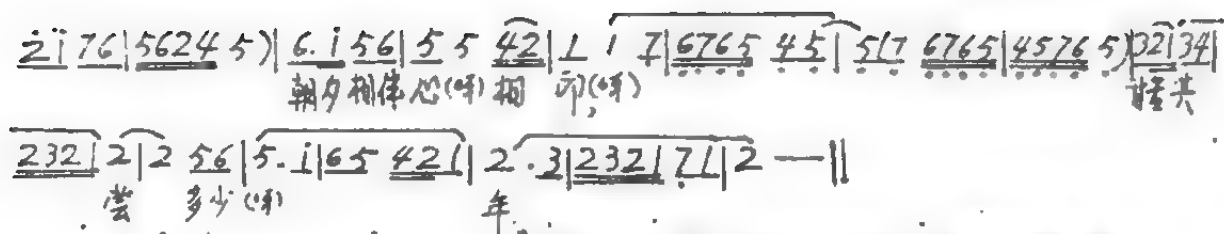 2̇i̇ 76|5624 5)| 6.i̇ 56|5 5 42|1 1 7̣|6̣7̣6̣5̣ 4̣5̣|5̣(7̣ 6̣7̣6̣5̣|4̣5̣7̣6̣ 5̣)|321 34|
朝夕相伴心(呀)相 印(呀), 甘苦共
2321 2|2 56|5. i̇|65 421|2 .3|2321 7̣1|2 —‖
尝 多少(呀) 年。